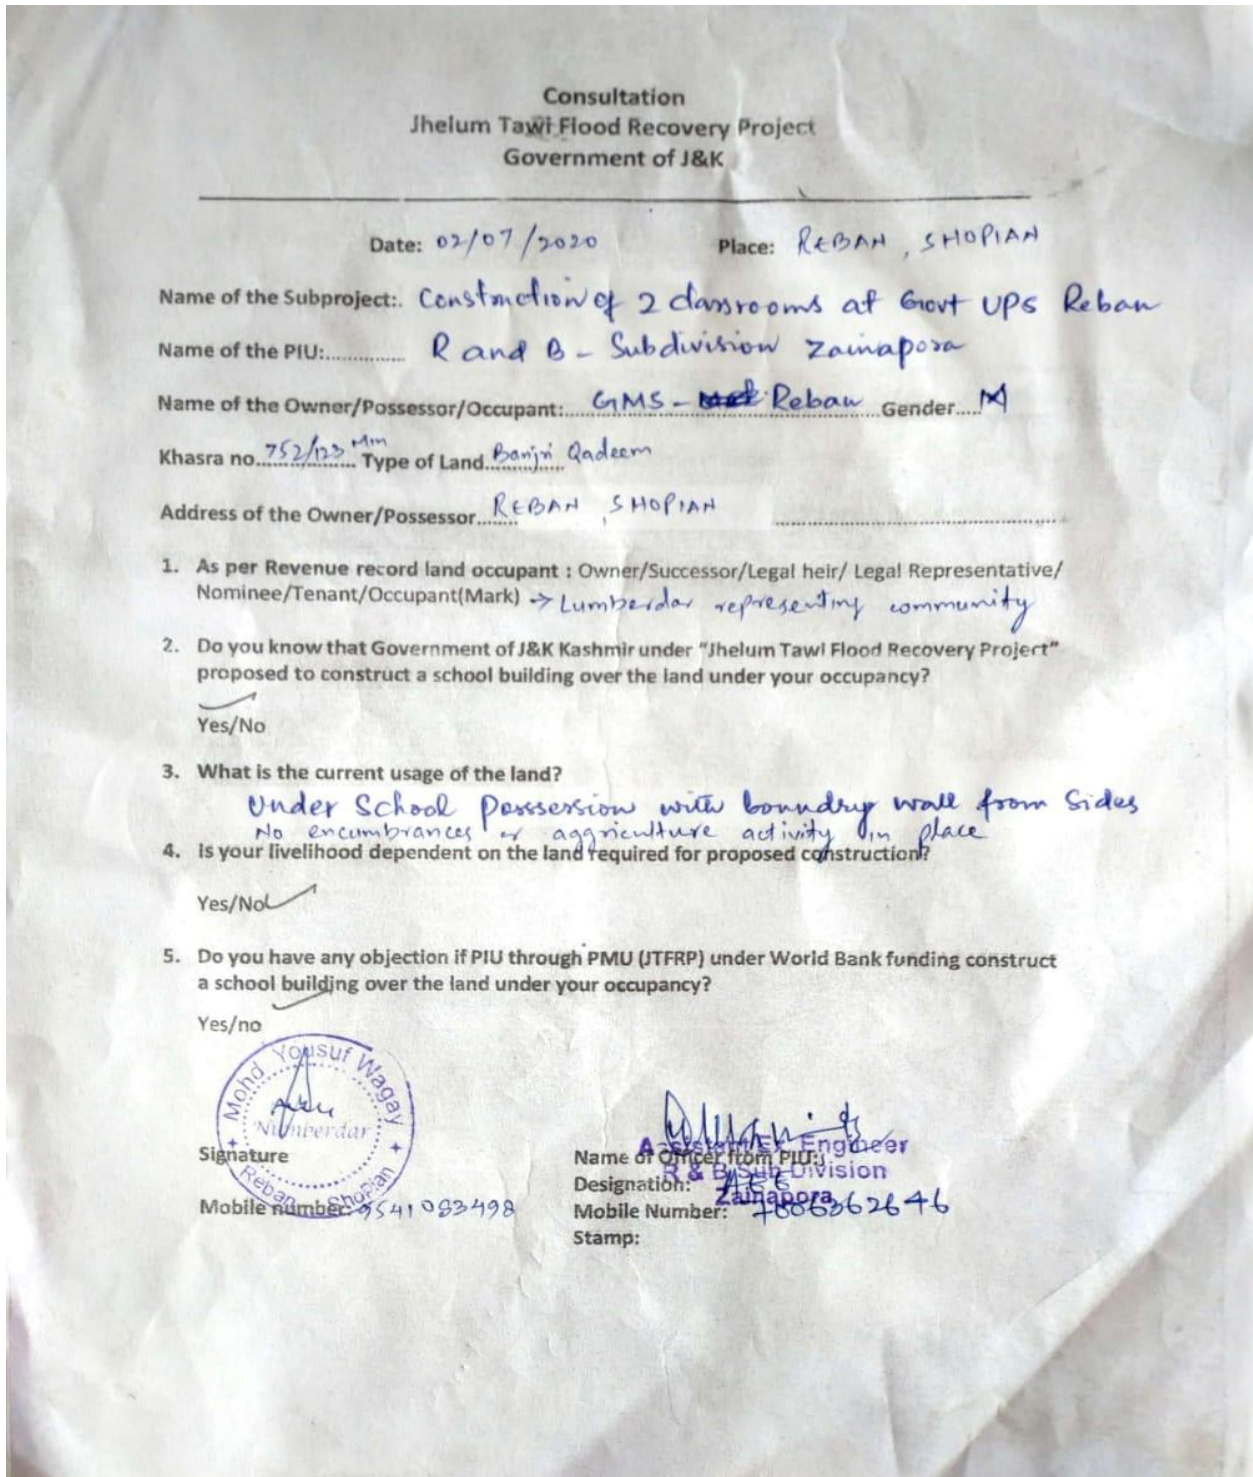 Consultation
Jhelum Tawi Flood Recovery Project
Government of J&K
Date: 02/07/2020 Place: REBAN, SHOPIAN
Name of the Subproject:. Construction of 2 classrooms at Govt UPS Reban
Name of the PIU:.............. R and B - Subdivision Zainapora
Name of the Owner/Possessor/Occupant:.... GMS - Reban Gender.... M
Khasra no. 752/123 Min Type of Land. Banjri Qadeem
Address of the Owner/Possessor....... REBAN, SHOPIAN
1. As per Revenue record land occupant : Owner/Successor/Legal heir/ Legal Representative/
Nominee/Tenant/Occupant(Mark) → Lumberdar representing community
2. Do you know that Government of J&K Kashmir under "Jhelum Tawi Flood Recovery Project"
proposed to construct a school building over the land under your occupancy?
Yes/No
3. What is the current usage of the land?
Under School Posssession with boundry wall from Sides
No encumbrances or aggriculture activity in place
4. Is your livelihood dependent on the land required for proposed construction?
Yes/No
5. Do you have any objection if PIU through PMU (JTFRP) under World Bank funding construct
a school building over the land under your occupancy?
Yes/no
Mohd Yousuf Wagay
Numberdar
Reban Shopian
Signature
Mobile number: 9541083498
Assistant Ex. Engineer
R & B Sub Division
Zainapora
Name of Officer from PIU:
Designation: AEE
Mobile Number: 7006362646
Stamp: